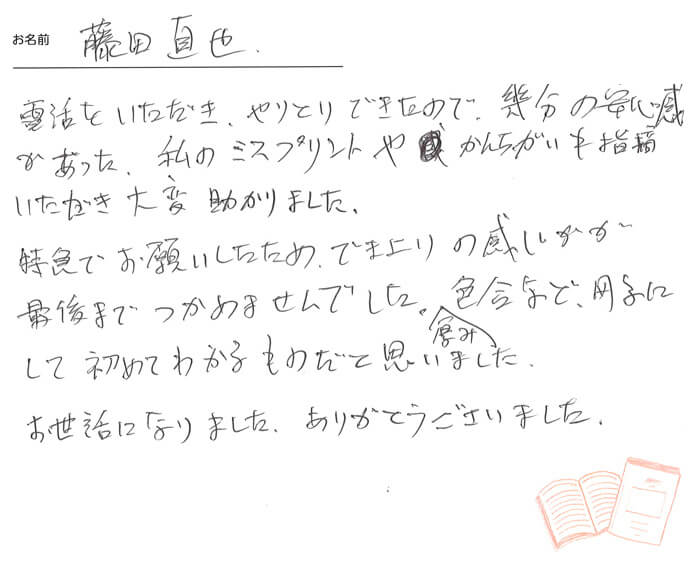 お名前 藤田直也.
電話をいただき、やりとりできたので、幾分の安心感
があった、私のミスプリントや かんちがいも指摘
いただき大変助かりました、
特急でお願いしたため、でき上りの感じがが
最後までつかめませんでした。色合など、冊子に
厚み
して初めてわかるものだと思いました.
お世話になりました、ありがとうございました.